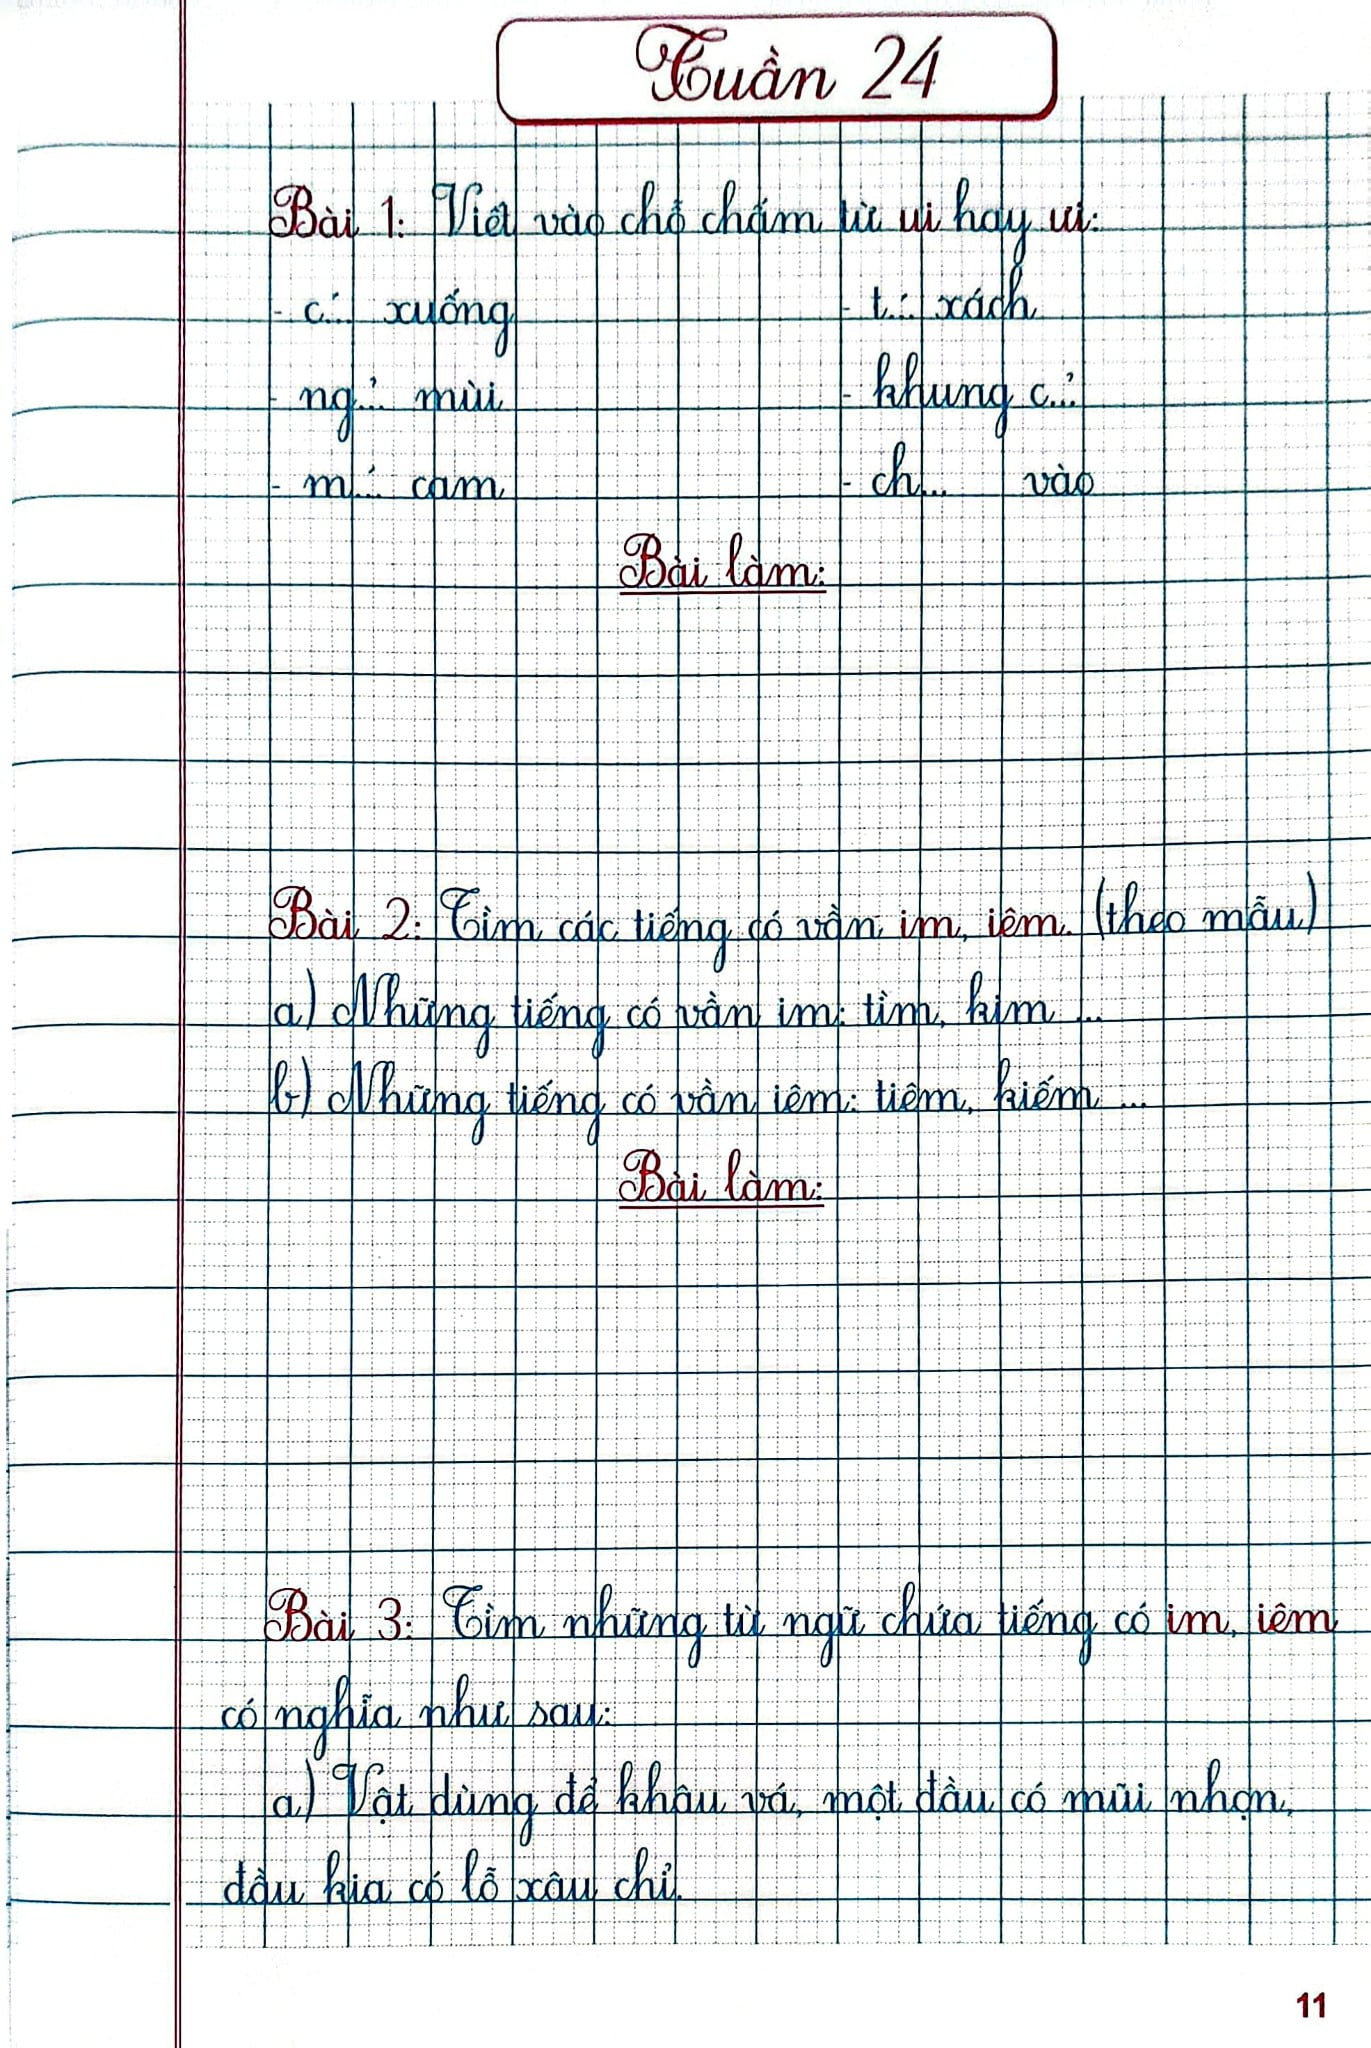 Tuần 24
Bài 1: Viết vào chỗ chấm từ ui hay ưi:
- c.́.. xuống - t.́.. xách
- ng.̉.. mùi - khung c.̉..
- m.́.. cam - ch... vào
Bài làm:
Bài 2: Tìm các tiếng có vần im, iêm. (theo mẫu)
a) Những tiếng có vần im: tìm, kim ...
b) Những tiếng có vần iêm: tiêm, kiếm ...
Bài làm:
Bài 3: Tìm những từ ngữ chứa tiếng có im, iêm
có nghĩa như sau:
a) Vật dùng để khâu vá, một đầu có mũi nhọn,
đầu kia có lỗ xâu chỉ.
11